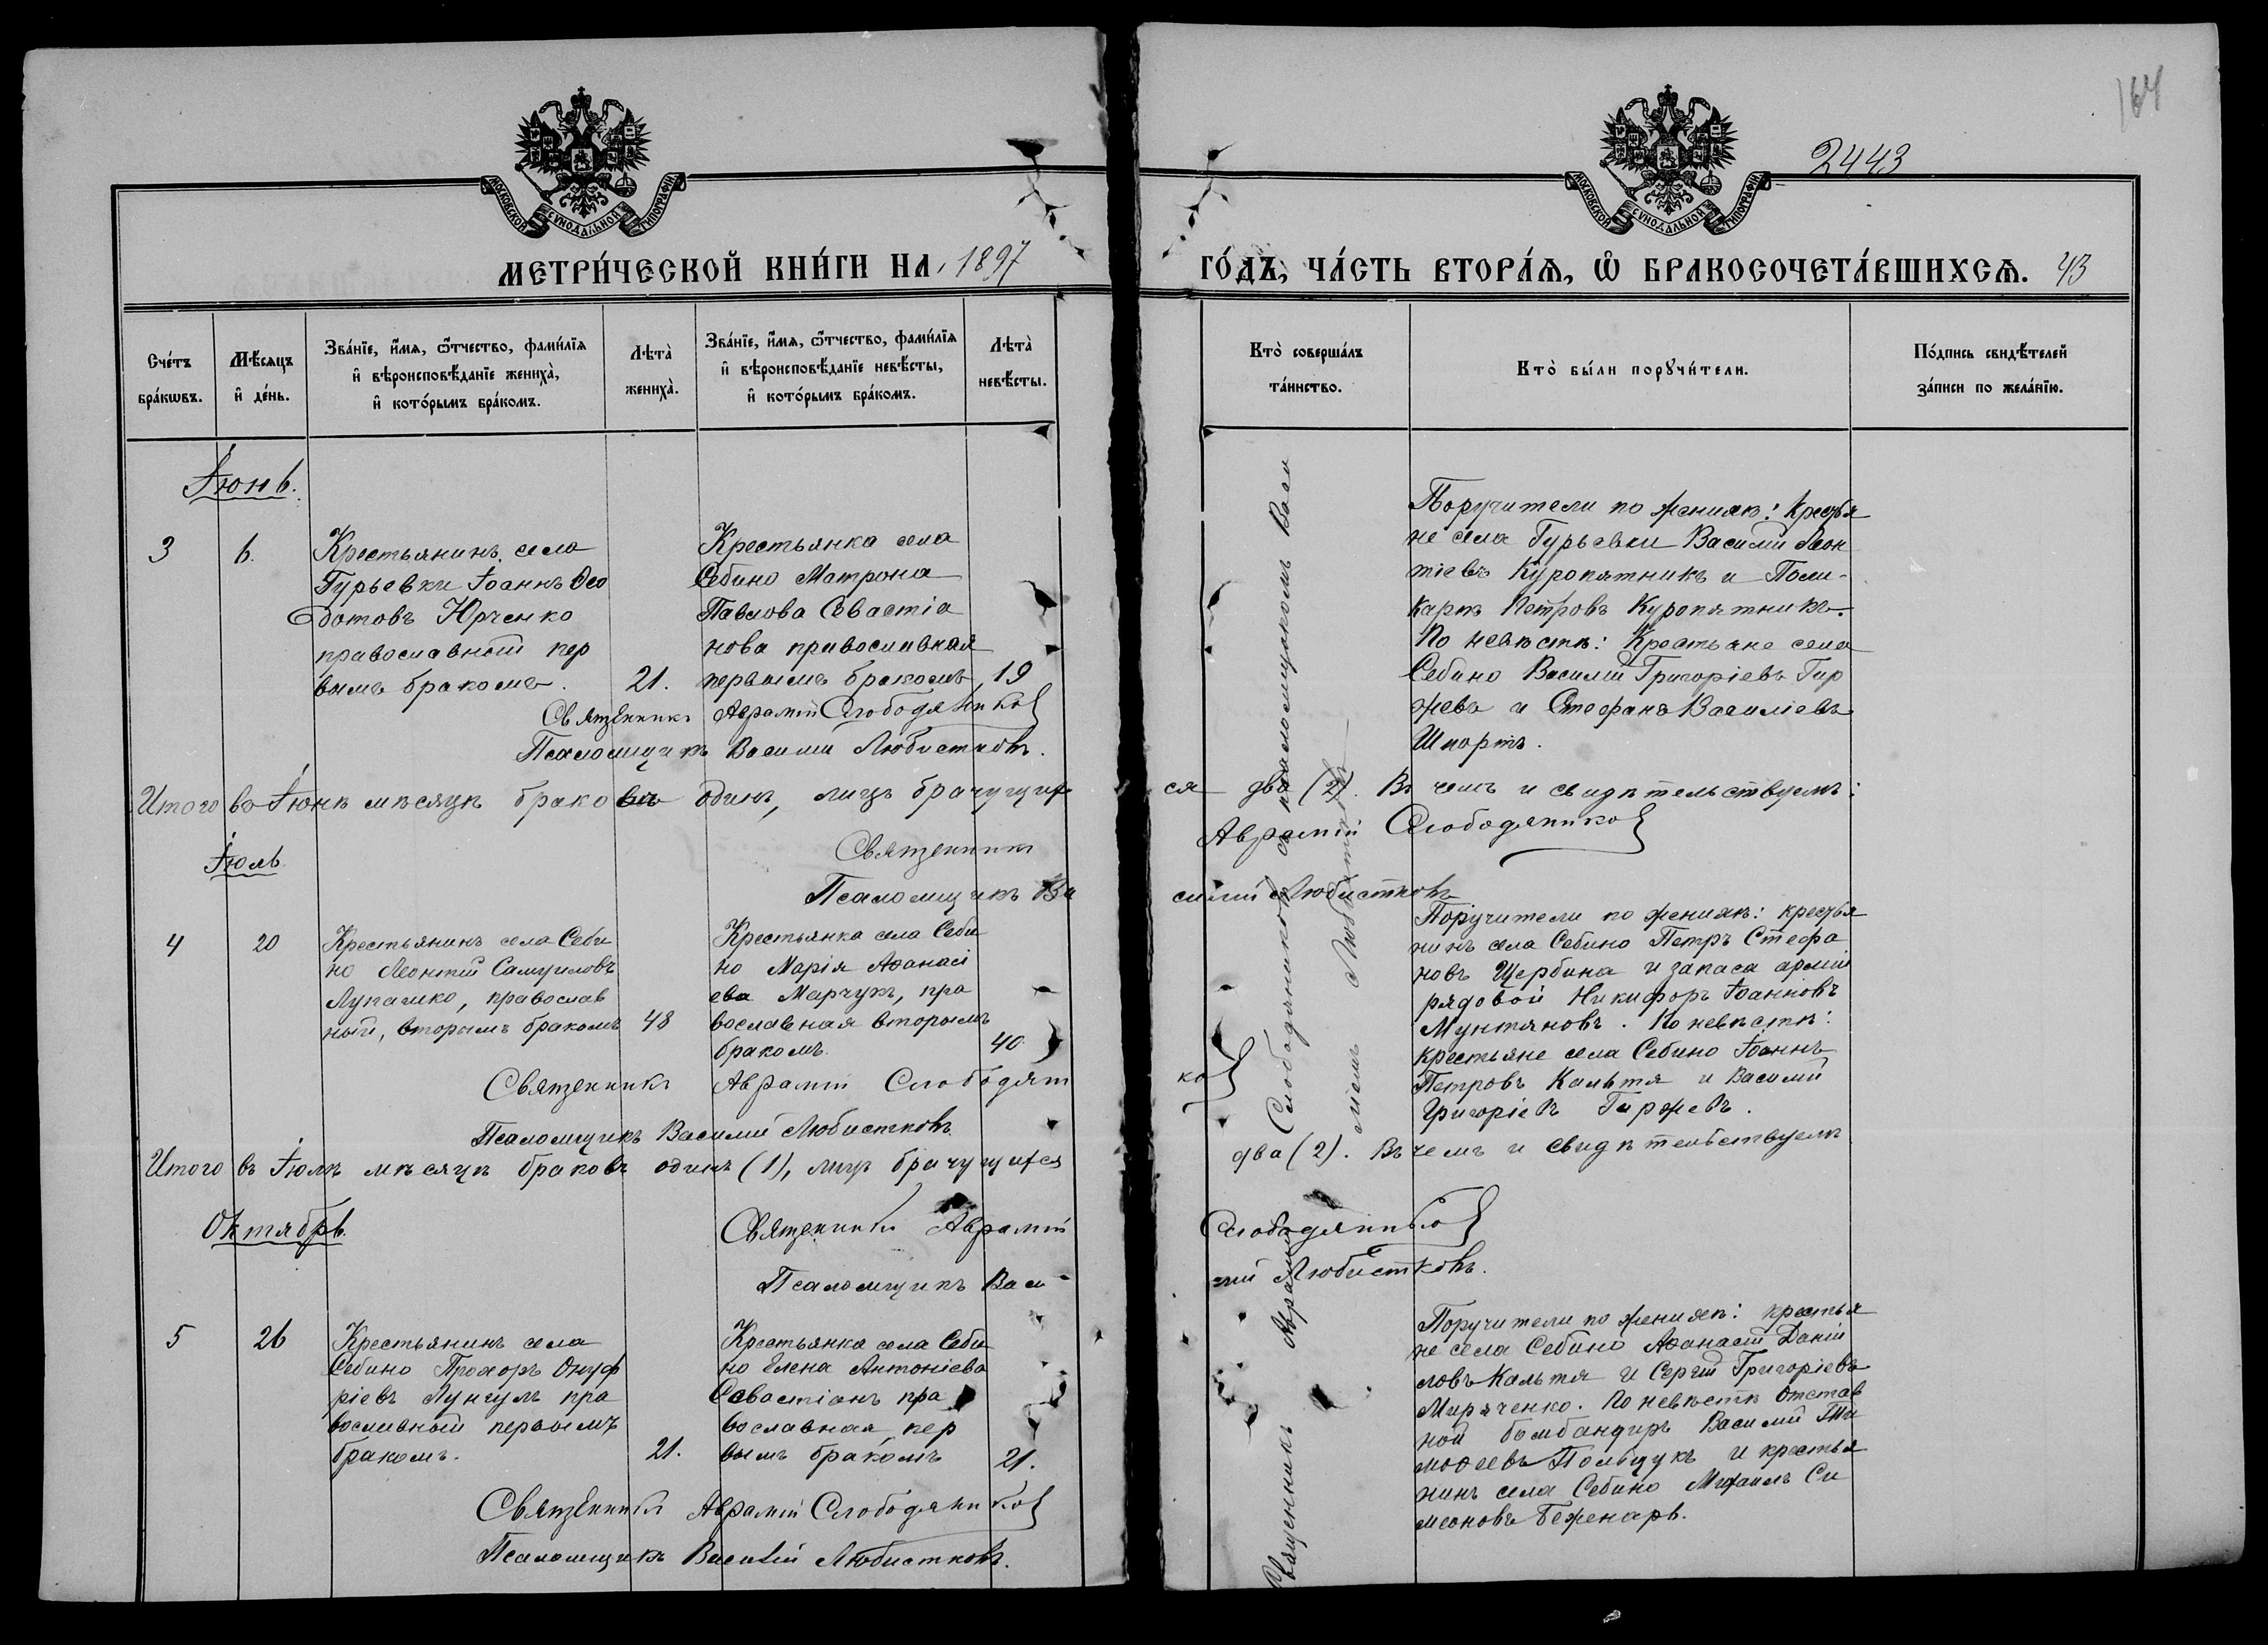 164
2443
МОСКОВСКОЙ СѴНОДАЛЬНОЙ ТИПОГРАФІИ
МОСКОВСКОЙ СѴНОДАЛЬНОЙ ТИПОГРАФІИ
МЕТРИ́ЧЕСКОЙ КНИ́ГИ НА 1897
ГО́ДЪ, ЧА́СТЬ ВТОРА́Ѧ, Ѡ҆ БРАКОСОЧЕТА́ВШИХСѦ. 43
Сче́тъ
бра́кѡвъ.
Мѣ́сяцъ
и҆ де́нь.
Зва́нїе, и҆́мя, ѻ҆́тчество, фами́лїя
и҆ вѣроисповѣ́данїе жениха̀,
и҆ кото́рымъ бра́комъ.
Лѣта̀
жениха̀.
Зва́нїе, и҆́мя, ѻ҆́тчество, фами́лїя
и҆ вѣроисповѣ́данїе невѣ́сты,
и҆ кото́рымъ бра́комъ.
Лѣта̀
невѣ́сты.
Кто̀ соверша́лъ
та́инство.
Кто̀ бы́ли порꙋчи́тели.
По́дпись свидѣ́телей
за́писи по жела́нїю.
Іюнь.
3
6.
Крестьянинъ села
Гурьевки Іоаннъ Ѳео
дотовъ Юрченко
православный пер
вымъ бракомъ.
21.
Крестьянка села
Себино Матрона
Павлова Севастіа
нова православная
первымъ бракомъ
19
Поручители по женихѣ: крестья
не села Гурьевки Василій Леон
тіевъ Куропятникъ и Поли-
карпъ Петровъ Куропятникъ.
По невѣстѣ: Крестьяне села
Себино Василій Григоріевъ Гир
жевъ и Стефанъ Василіевъ
Шпортъ.
Священникъ Аврамій Слободянико
Псаломщикъ Василій Любистковъ.
Итого въ Іюнѣ мѣсяцѣ браковъ одинъ, лицъ брачущих
ся два (2). Въ чемъ и свидѣтельствуемъ:
Священникъ
Аврамій Слободянико
Псаломщикъ Ва
силій Любистковъ
Іюль
4
20
Крестьянинъ села Себи
но Леонтій Самуиловъ
Лупашко, православ
ный, вторымъ бракомъ
48
Крестьянка села Себи
но Марія Аѳанасі
ева Марчукъ, пра
вославная вторымъ
бракомъ.
40
Поручители по женихѣ: крестья
нинъ села Себино Петръ Стефа
новъ Щербина и запаса арміи
рядовой Никифоръ Іоанновъ
Мунтяновъ. По невѣстѣ:
крестьяне села Себино Іоаннъ
Петровъ Кальтя и Василій
Григоріевъ Гиржевъ.
Священникъ Аврамій Слободян
ко
Псаломщикъ Василій Любистковъ
Итого въ Іюлѣ мѣсяцѣ браковъ одинъ (1), лицъ брачущихся
два (2). Въ чемъ и свидѣтельствуемъ
Священникъ Аврамій
Слободянико
Псаломщикъ Васи
лій Любистковъ.
Октябрь.
5
26
Крестьянинъ села
Себино Прохоръ Онуф
ріевъ Лунгулъ пра
вославный первымъ
бракомъ.
21.
Крестьянка села Себи
но Елена Антоніева
Севастіанъ пра
вославная, пер
вымъ бракомъ
21.
Поручители по женихѣ: крестья
не села Себино Аѳанасій Даніи
ловъ Кальтя и Сергій Григоріевъ
Миряченко. По невѣстѣ Отстав
ной бомбандиръ Василій Ти
моѳеевъ Полищукъ и крестья
нинъ села Себино Михаилъ Си
меоновъ Беженаръ.
Священникъ Аврамій Слободянико
Псаломщикъ Василій Любистковъ.
Священникъ Аврамій Слободянико съ псаломщикомъ Васи
ліемъ Любистковымъ